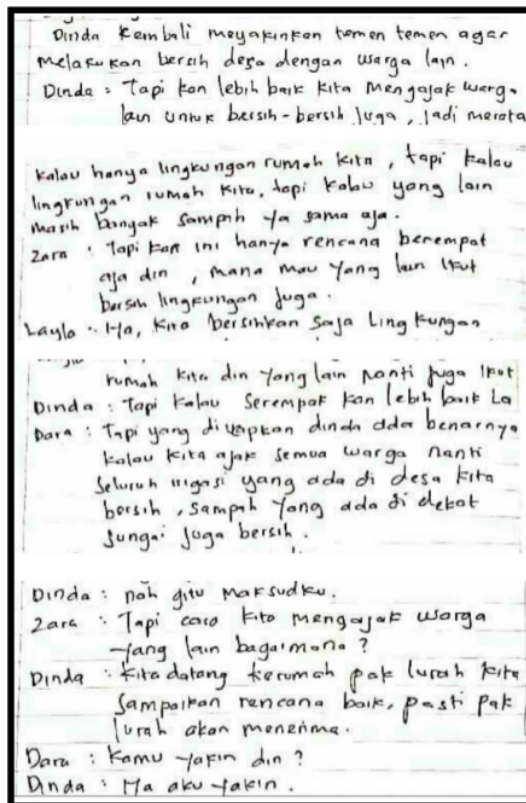 Dinda kembali meyakinkan temen temen agar
melakukan bersih desa dengan warga lain.
Dinda : Tapi kan lebih baik kita mengajak warga
lain untuk bersih-bersih juga, jadi merata
kalau hanya lingkungan rumah kita, tapi kalau
lingkungan rumah kita, tapi kalau yang lain
masih banyak sampah ya sama aja.
Zara : Tapi kan ini hanya rencana berempat
aja din, mana mau yang lain ikut
bersih lingkungan juga.
Layla : Iya, kita bersihkan saja lingkungan
rumah kita din yang lain nanti juga ikut
Dinda : Tapi kalau serempak kan lebih baik La
Dara : Tapi yang diucapkan dinda ada benarnya
kalau kita ajak semua warga nanti
seluruh irigasi yang ada di desa kita
bersih, sampah yang ada di dekat
sungai juga bersih.
Dinda : nah gitu maksudku.
Zara : Tapi cara kita mengajak warga
yang lain bagaimana ?
Dinda : kita datang kerumah pak lurah kita
sampaikan rencana baik, pasti pak
lurah akan menerima.
Dara : Kamu yakin din ?
Dinda : Ya aku yakin.